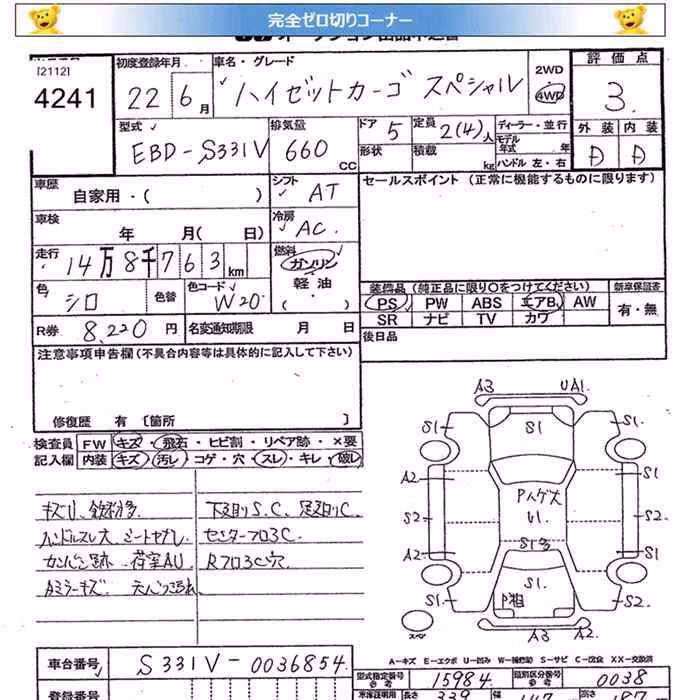 完全ゼロ切りコーナー
[2112]
4241
初度登録年月
22 6月
車名・グレード
ハイゼットカーゴ スペシャル
2WD
4WD
評価点
3.
外装 内装
D D
型式
EBD-S331V
排気量
660 CC
ドア 5
形状
定員 2(4)人
積載 kg
ディーラー・並行
モデル年式 年
ハンドル 左・右
車歴
自家用・( )
シフト
AT
セールスポイント (正常に機能するものに限ります)
車検
年 月( 日)
冷房
AC.
走行
14万8千763km
燃料
ガソリン
軽油
( ・ )
色
シロ
色替
色コード
W20
装備品 (純正品に限り○をつけてください)
PS PW ABS エアB AW
SR ナビ TV カワ
新車保証書
有・無
R券 8,220 円
名変通知期限 月 日
後日品
注意事項申告欄(不具合内容等は具体的に記入して下さい)
修復歴 有 〔箇所 〕
検査員記入欄
FW キズ・飛石・ヒビ割・リペア跡・×要
内装 キズ・汚レ・コゲ・穴・スレ・キレ・破レ
キズU、鉄粉多
ハンドルスレ大 シートヤブレ
カンバン跡 荷室AU
Aミラーキズ
下廻りS.C、足廻りC
センターフロ3C
Rフロ3C穴
A3 UA1.
S1 S1 S1
A2 S1
Pハゲ大
U1.
S2 S2.
S1多
A2 S1
S1.
P粗
S1. S2
A3 A2
スペア
A-キズ E-エクボ U-凹み W-補修跡 S-サビ C-腐食 XX-交換済
車台番号
S331V-0036854
型式指定番号
15984
類別区分番号
0038
登録番号
長さ
339